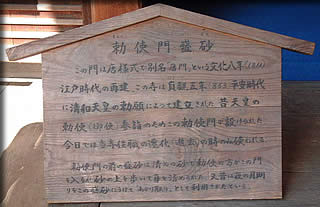 勅使門盛砂
この門は唐様式で別名唐門という文化八年(1811)
江戸時代の再建 この寺は貞観五年(863)平安時代
に清和天皇の勅願によって建立された 昔天皇の
勅使(お使)参詣のためこの勅使門が設けられた
今日では当寺住職の
の時のみ使われる
勅使門の前の盛砂は清めの砂で勅使の方がこの門
を入る
砂の上を歩いて身を清められた 又昔は夜の月明
りをこの盛砂にうけて あかり取り として利用されたという。